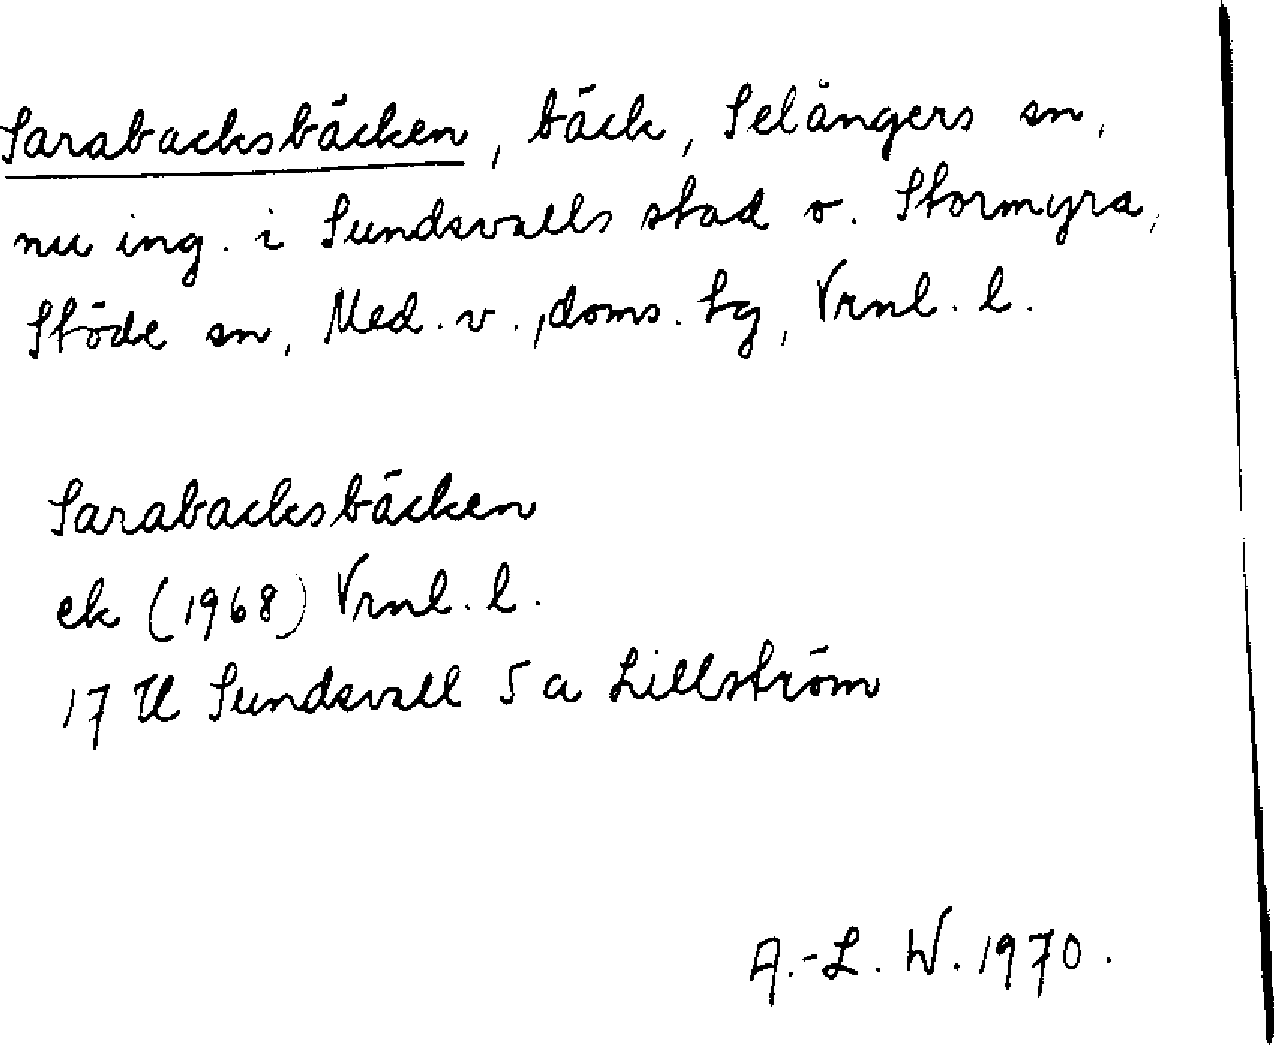 Sarabacksbäcken, bäck, Selångers sn,
nu ing. i Sundsvalls stad o. Stormyra,
Stöde sn, Med. v., doms. tg, Vrnl. l.
Sarabacksbäcken
ek (1968) Vrnl. l.
17 H Sundsvall 5 a Lillström
A.-L. W. 1970.